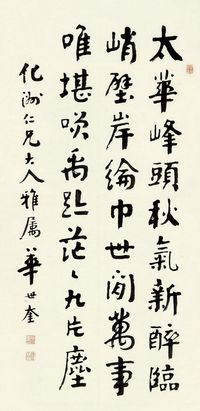 太華峰頭秋氣新醉臨
峭壁岸綸巾世間萬事
唯堪咲禹跡茫〻九片塵
化洲仁兄大人雅屬華世奎